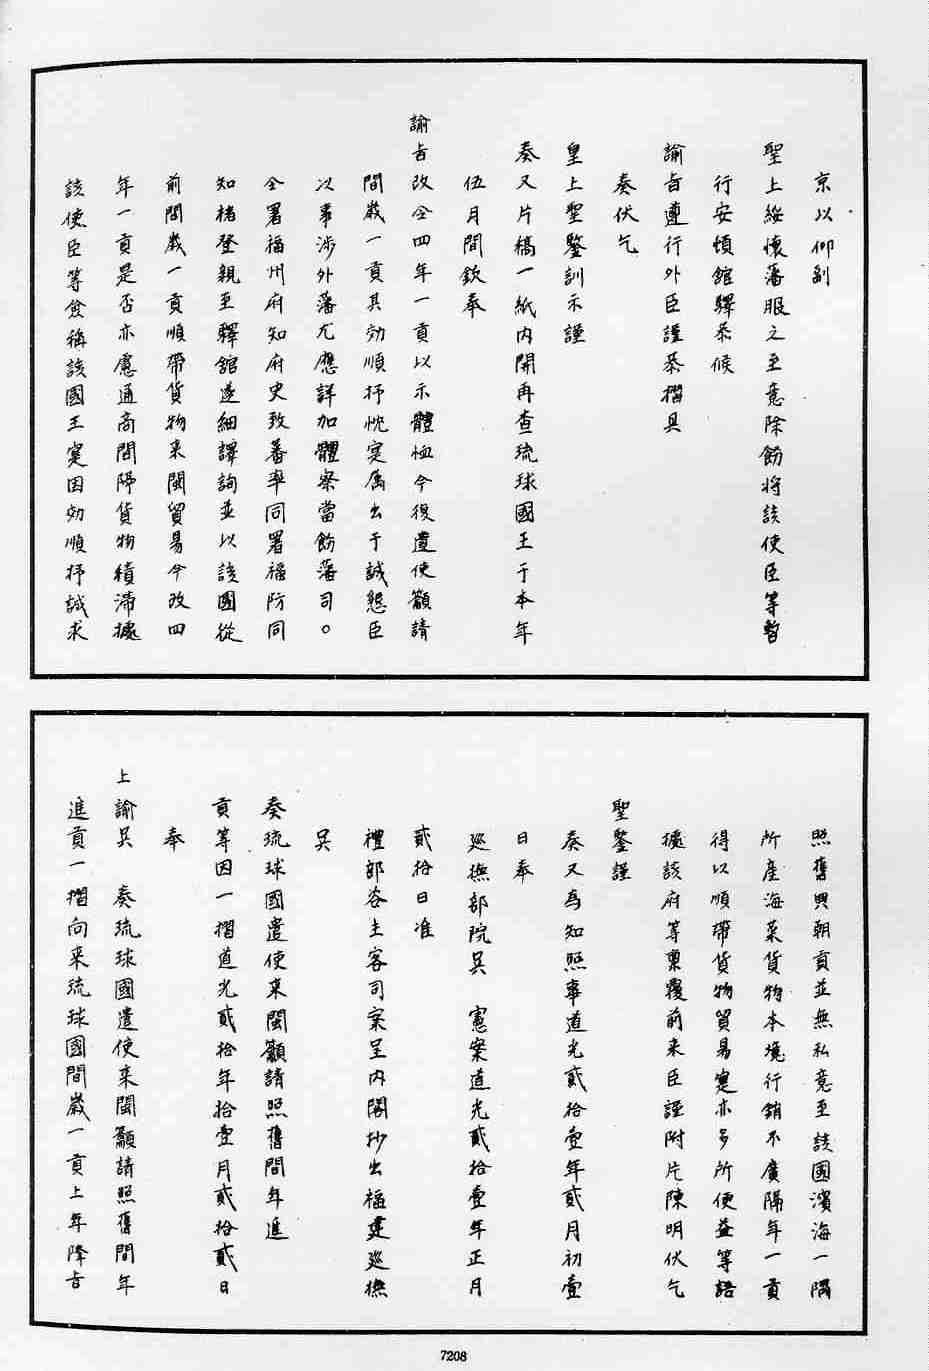 京以仰副
聖上綏懷藩服之至意除飭將該使臣等暫
行安頓館驛恭候
諭旨遵行外臣謹恭摺具
奏伏乞
皇上聖鑒訓示謹
奏又片稿一紙內開再查琉球國王于本年
伍月間欽奉
諭旨改令四年一貢以示體恤今復遣使籲請
間歲一貢其効順抒忱寔屬出于誠懇臣
以事涉外藩尤應詳加體察當飭藩司。
仝署福州府知府史致蕃率同署福防同
知楮登親至驛館逐細譯詢並以該國從
前間歲一貢順帶貨物来閩貿易今改四
年一貢是否亦慮通商間隔貨物積滯據
該使臣等僉稱該國王寔因効順抒誠求
照舊興朝貢並無私意至該國濱海一隅
所產海菜貨物本境行銷不廣隔年一貢
得以順帶貨物貿易寔亦多所便益等語
據該府等稟覆前来臣謹附片陳明伏乞
聖鑒謹
奏又為知照事道光貳拾壹年貳月初壹
日奉
巡撫部院吳　憲案道光貳拾壹年正月
貳拾日准
禮部咨主客司案呈內閣抄出福建巡撫
吳
奏琉球國遣使来閩籲請照舊間年進
貢等因一摺道光貳拾年拾壹月貳拾貳日
奉
上諭吳　奏琉球國遣使来閩籲請照舊間年
進貢一摺向来琉球國間歲一貢上年降旨
7208